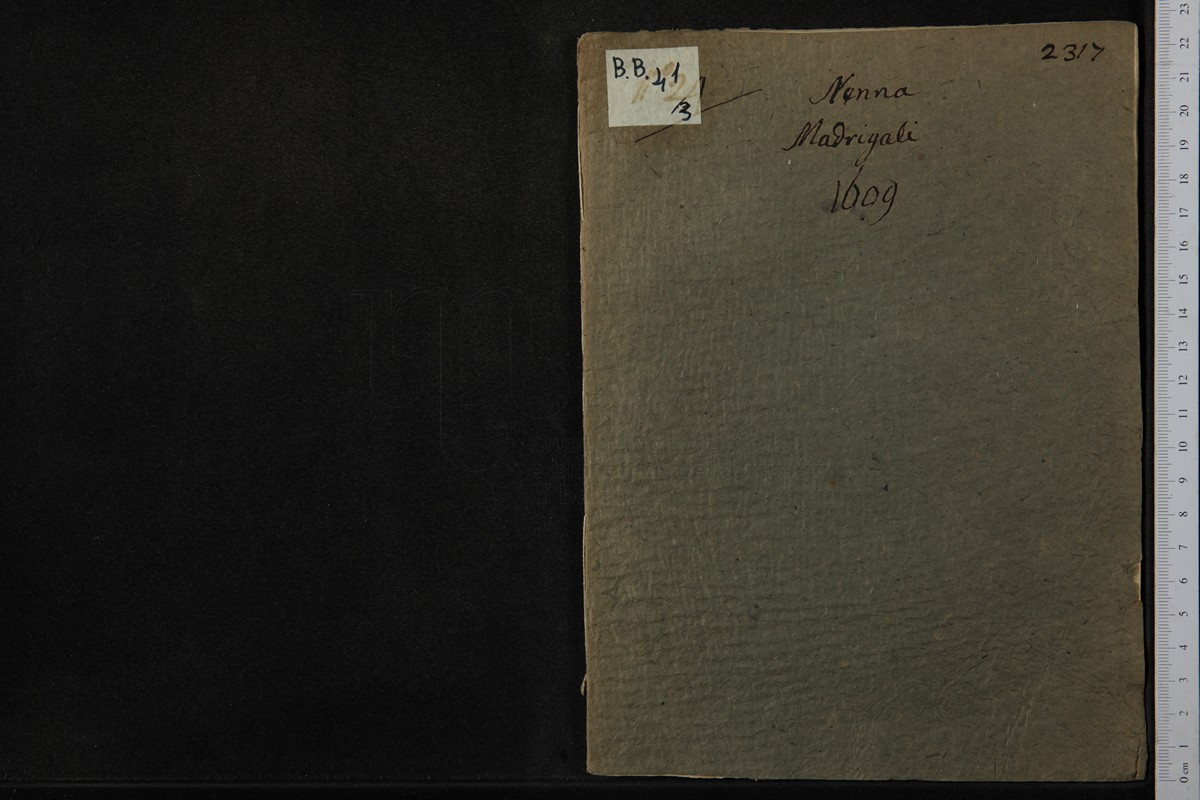 B.B. 41
/3
2317
Nenna
Madrigali
1609
23
22
21
20
19
18
17
16
15
14
13
12
11
10
9
8
7
6
5
4
3
2
1
0 cm